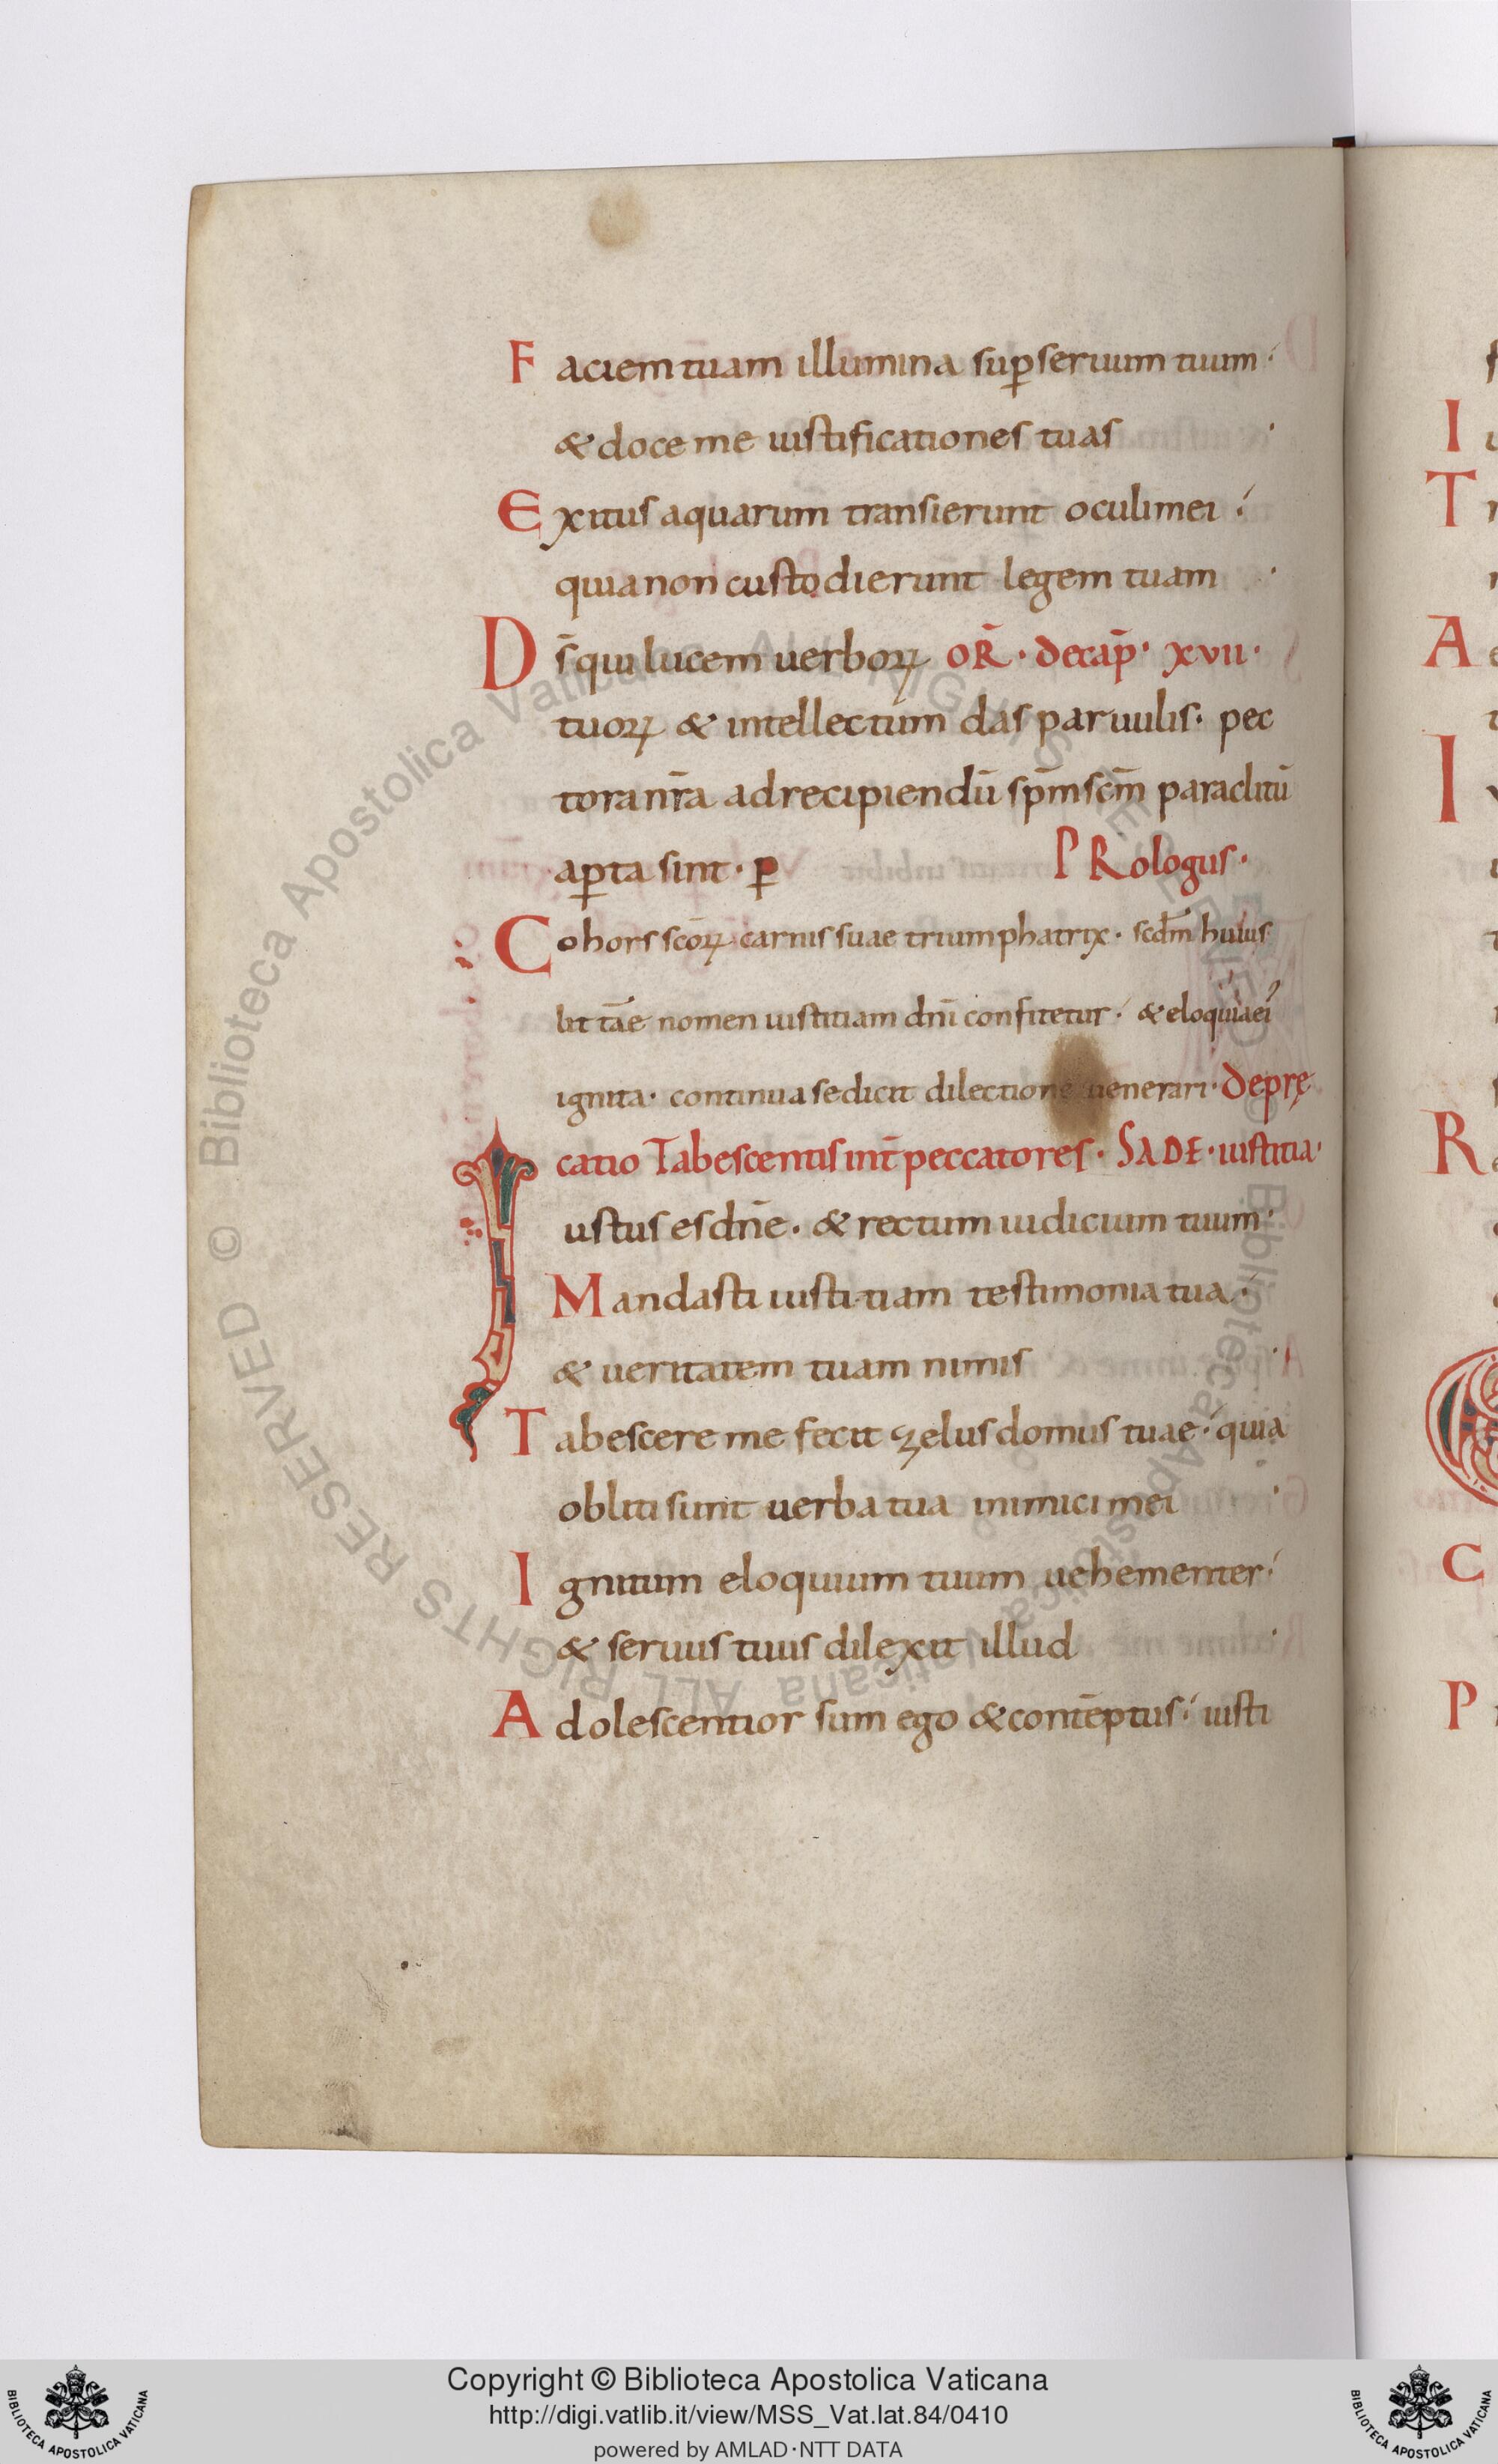 Faciem tuam illumina sup seruum tuum
& doce me iustificationes tuas
Exitus aquarum transierunt oculi mei
quia non custodierunt legem tuam
Ds̄ qui lucem uerboꝝ OR̄ · de cap̄ · xvii ·
tuoꝝ & intellectum das paruulis · pec
tora nr̄a ad recipiendū sp̄m sc̄m paraclitū
aꝑta sint · ꝑ PRologus ·
Cohors sc̄oꝝ carnis suae triumphatrix · scdm̄ huius
litt̄ae nomen iustitiam dn̄i confitetur & eloquia ei
ignita · continua se dicit dilectione uenerari · deprę
catio Tabescentis int̄ peccatores · SADE · iustitia ·
Iustus es dn̄e · & rectum iudicium tuum
Mandasti iustitiam testimonia tua
& ueritatem tuam nimis
Tabescere me fecit zelus domus tuae quia
obliti sunt uerba tua inimici mei
Ignitum eloquium tuum uehementer
& seruus tuus dilexit illud
Adolescentior sum ego & contēptus iusti
I
T
A
I
R
C
P
Biblioteca Apostolica Vaticana ALL RIGHTS RESERVED ©
Copyright © Biblioteca Apostolica Vaticana
http://digi.vatlib.it/view/MSS_Vat.lat.84/0410
powered by AMLAD·NTT DATA
BIBLIOTECA APOSTOLICA VATICANA
BIBLIOTECA APOSTOLICA VATICANA